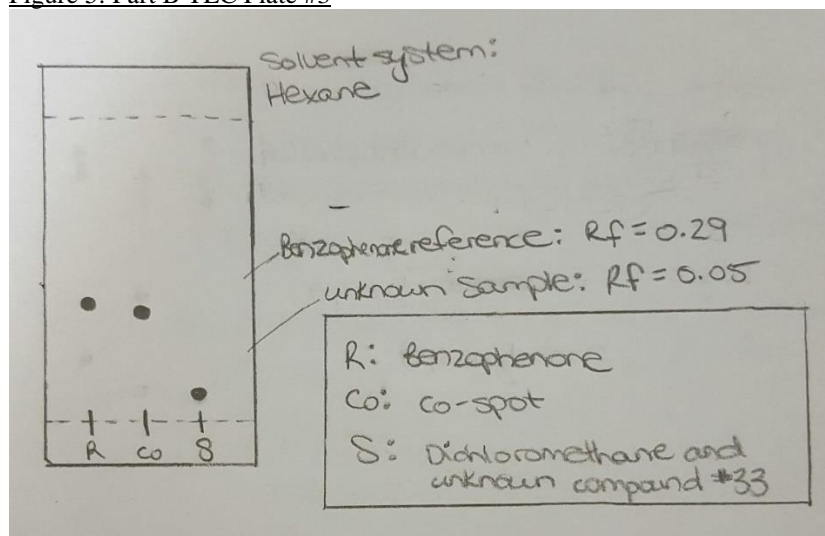 Figure 3: Part B TLC Plate #3
Solvent system:
Hexane
Benzophenone reference: Rf = 0.29
unknown sample: Rf = 0.05
R: Benzophenone
Co: co-spot
S: Dichloromethane and
unknown compound #33
R co S